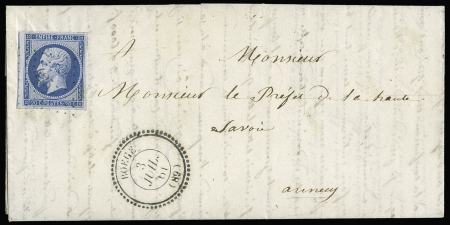 EMPIRE FRANC
20 C. POSTES 20 C.
A
Monsieur
Monsieur le Préfet de la haute
Savoie
annecy
BOEGE
3
JUIL.
61
(89)